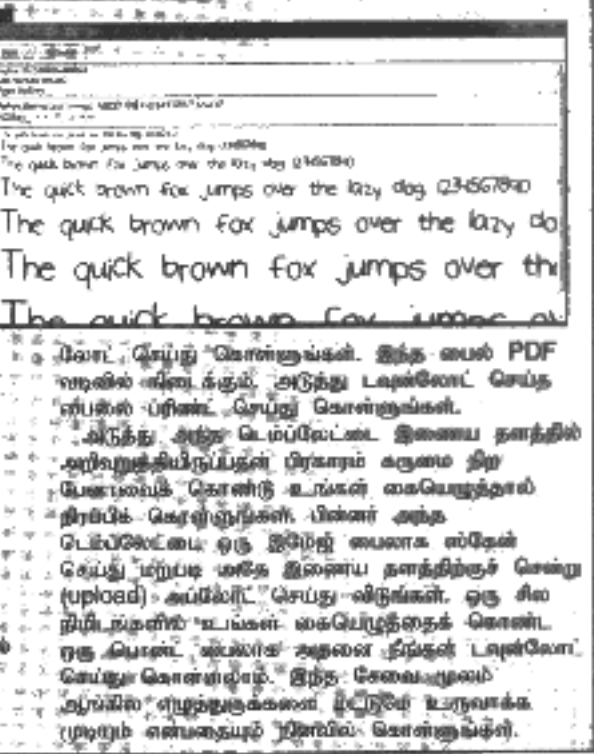 The quick brown fox jumps over the lazy dog. 1234567890
The quick brown fox jumps over the lazy dog. 1234567890
The quick brown fox jumps over the lazy do
The quick brown fox jumps over the
The quick brown fox jumps ov
லோட் செய்து கொள்ளுங்கள். இந்த பைல் PDF
வடிவில் கிடைக்கும். அடுத்து டவுன்லோட் செய்த
பைலை ப்ரிண்ட் செய்து கொள்ளுங்கள்.
அடுத்து அந்த டெம்ப்லேட்டை இணைய தளத்தில்
அறிவுறுத்தியிருப்பதன் பிரகாரம் கருமை நிற
பேனாவைக் கொண்டு உங்கள் கையெழுத்தால்
நிரப்பிக் கொள்ளுங்கள். பின்னர் அந்த
டெம்ப்லேட்டை ஒரு இமேஜ் பைலாக ஸ்கேன்
செய்து மறுபடி அதே இணைய தளத்திற்குச் சென்று
(upload) அப்லோட் செய்து விடுங்கள். ஒரு சில
நிமிடங்களில் உங்கள் கையெழுத்தைக் கொண்ட
ஒரு பொண்ட் பைலாக அதனை நீங்கள் டவுன்லோட்
செய்து கொள்ளலாம். இந்த சேவை மூலம்
ஆங்கில எழுத்துருக்களை மட்டுமே உருவாக்க
முடியும் என்பதையும் நினைவில் கொள்ளுங்கள்.